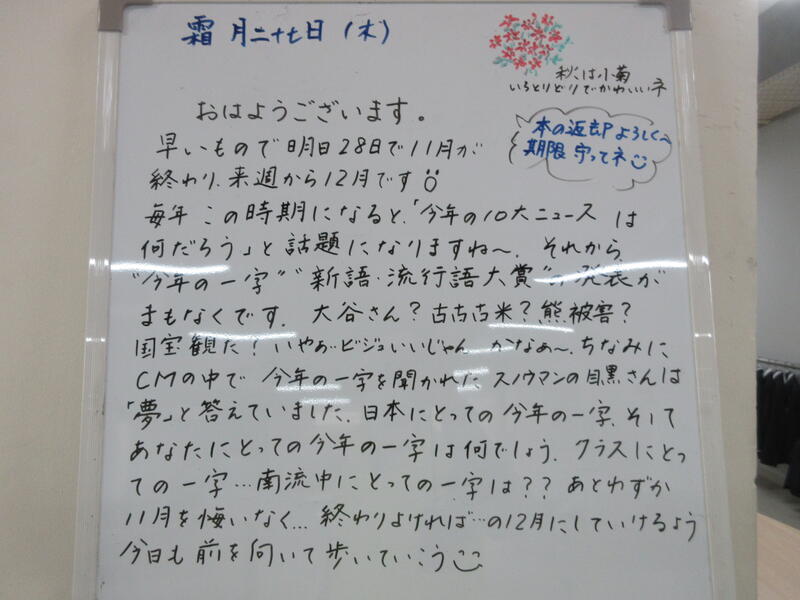 霜月二十七日(木)
秋は小菊
いろとりどりでかわいいネ
本の返却よろしく
期限守ってネ
おはようございます。
早いもので明日28日で11月が
終わり、来週から12月です
毎年この時期になると、「今年の10大ニュースは
何だろう」と話題になりますね〜。それから、
"今年の一字""新語・流行語大賞"の発表が
まもなくです。大谷さん?古古古米?熊被害?
国宝観た!いやぁ、ビジュいいじゃん、かなぁ〜。ちなみに
CMの中で今年の一字を聞かれたスノウマンの目黒さんは
「夢」と答えていました。日本にとっての今年の一字、そして
あなたにとっての今年の一字は何でしょう。クラスにとっ
ての一字…南流中にとっての一字は??あとわずか
11月を悔いなく…終わりよければ…の12月にしていけるよう
今日も前を向いて歩いていこう